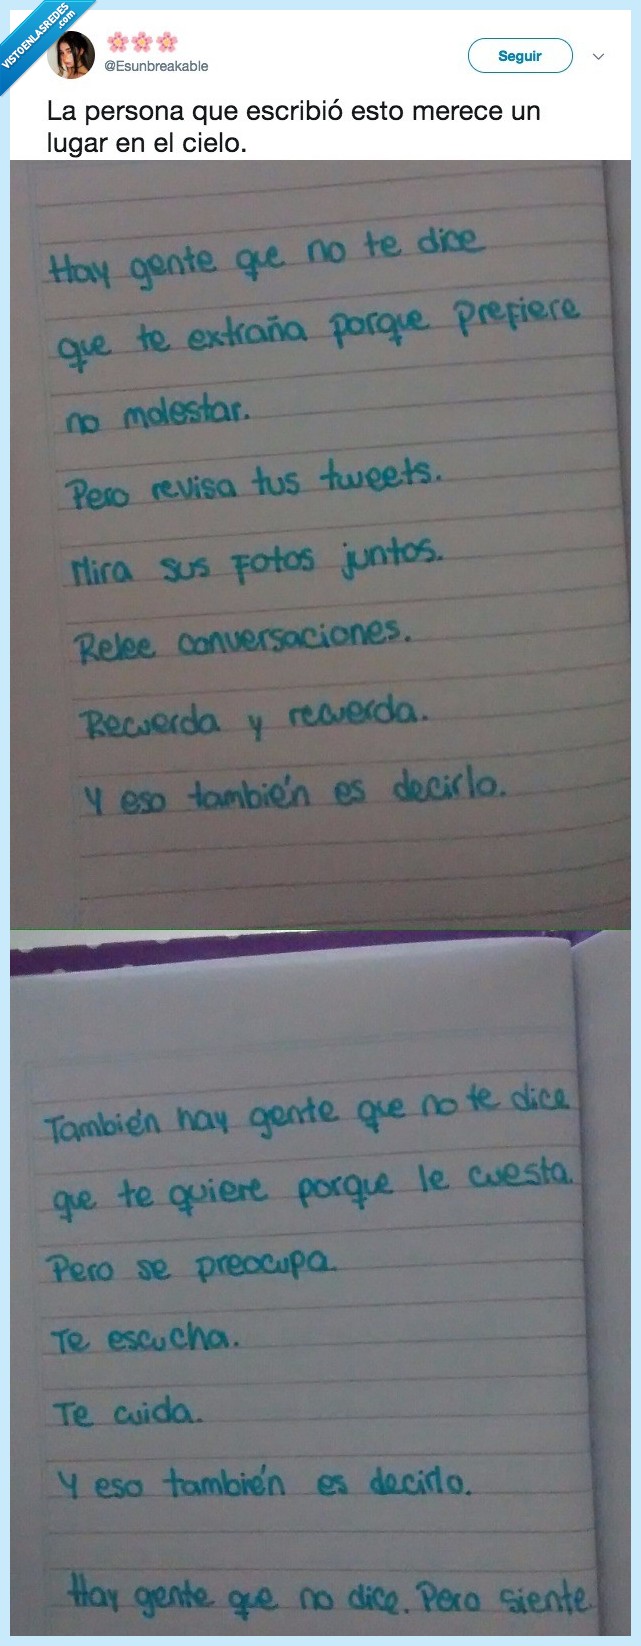 VISTOENLASREDES
.com
@Esunbreakable
Seguir
La persona que escribió esto merece un
lugar en el cielo.
Hay gente que no te dice
que te extraña porque prefiere
no molestar.
Pero revisa tus tweets.
Mira sus fotos juntos.
Relee conversaciones.
Recuerda y recuerda.
Y eso también es decirlo.
También hay gente que no te dice
que te quiere porque le cuesta.
Pero se preocupa.
Te escucha.
Te cuida.
Y eso también es decirlo.
Hay gente que no dice. Pero siente